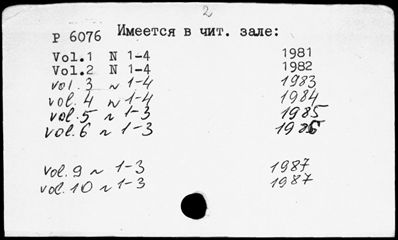 2
P 6076 Имеется в чит. зале:
Vol.1 N 1-4 1981
Vol.2 N 1-4 1982
vol. 3 N 1-4 1983
vol. 4 N 1-4 1984
vol. 5 N 1-3 1985
vol. 6 N 1-3 1986
vol. 9 N 1-3 1987
vol. 10 N 1-3 1987